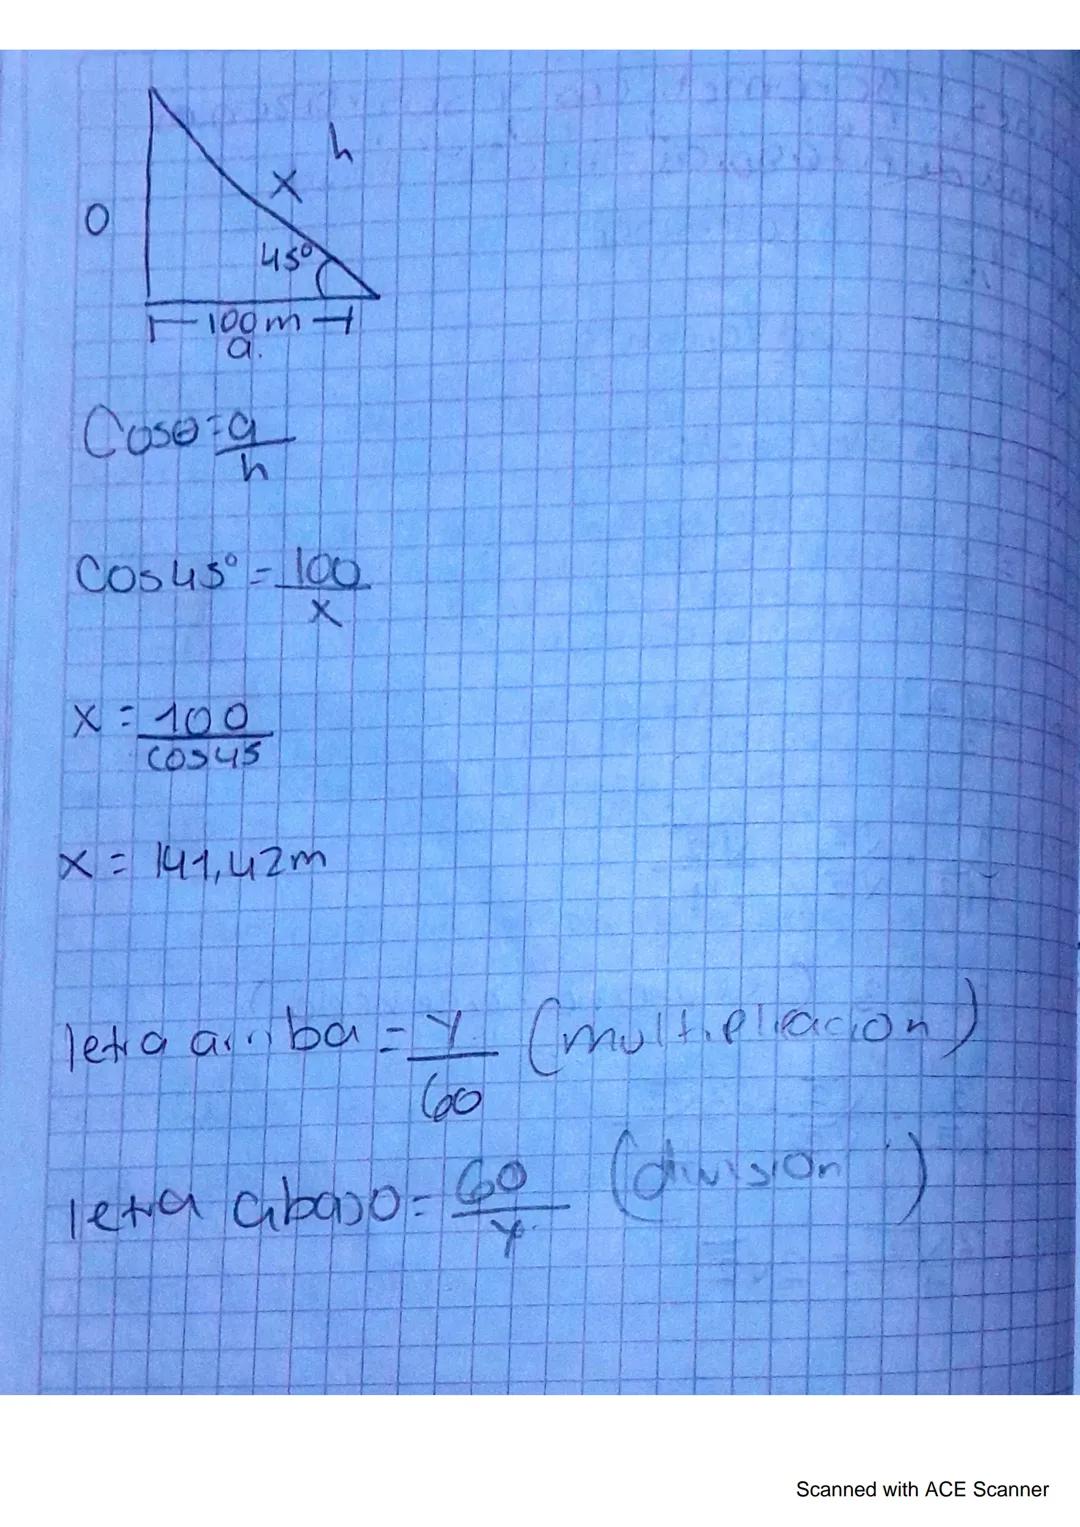 h
x
O
45°
100 m
a.
Cosθ = a
h
Cos 45° = 100
x
x = 100
cos 45
x = 141,42m
letra arriba = y (multiplicacion)
60
letra abajo = 60 (division)
y
Scanned with ACE Scanner